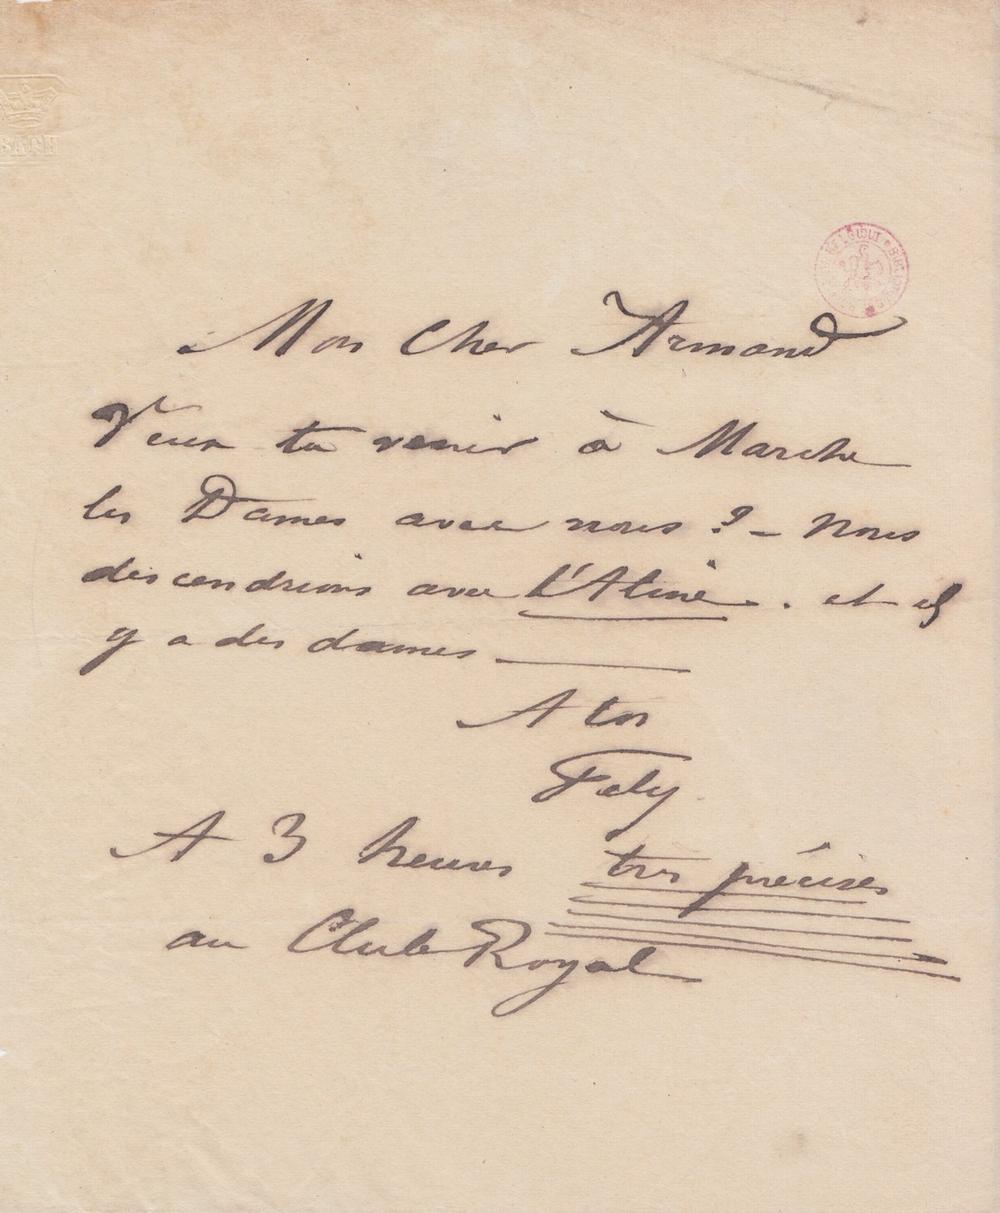 BATH
Mon Cher Armand
Veux tu venir à Marche
les Dames avec nous ? – Nous
descendrions avec L'Aline . et il
y a des dames
A toi
Fély
A 3 heures très précises
au Club Royal